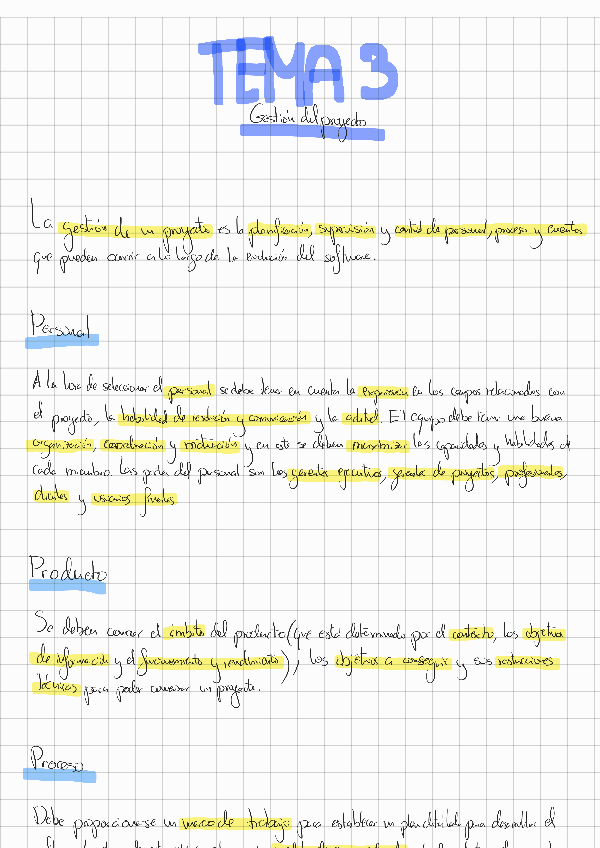 TEMA 3
Gestión del proyecto
La gestión de un proyecto es la planificación, supervisión y control de personal, proceso y eventos
que pueden ocurrir a lo largo de la evolución del software.
Personal
A la hora de seleccionar el personal se debe tener en cuenta la experiencia en los campos relacionados con
el proyecto, la habilidad de resolución y comunicación y la actitud. El equipo debe tener una buena
organización, coordinación y motivación y en este se deben las capacidades y habilidades de
cada miembro. Los del personal son los gerentes ejecutivos, gerente de proyectos, profesionales,
clientes y usuarios finales
Producto
Se deben conocer el ámbito del producto (que está determinado por el contexto, los objetivos
de información y el funcionamiento y rendimiento), los objetivos a conseguir y sus restricciones
técnicas para poder comenzar un proyecto.
Proceso
Debe proporcionarse un marco de trabajo para establecer un plan detallado para desarrollar el